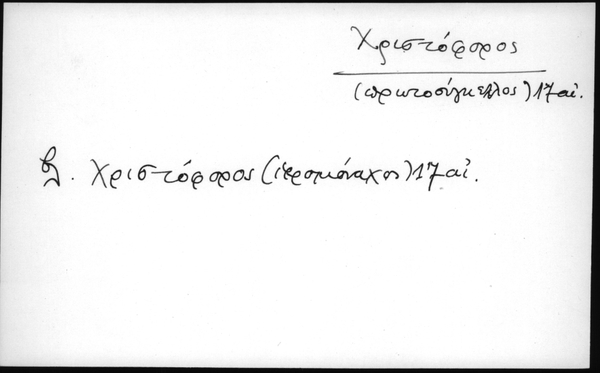 Χριστόφορος
(πρωτοσύγκελλος) 17 αἰ.
βλ. Χριστόφορος (ἱερομόναχος) 17 αἰ.